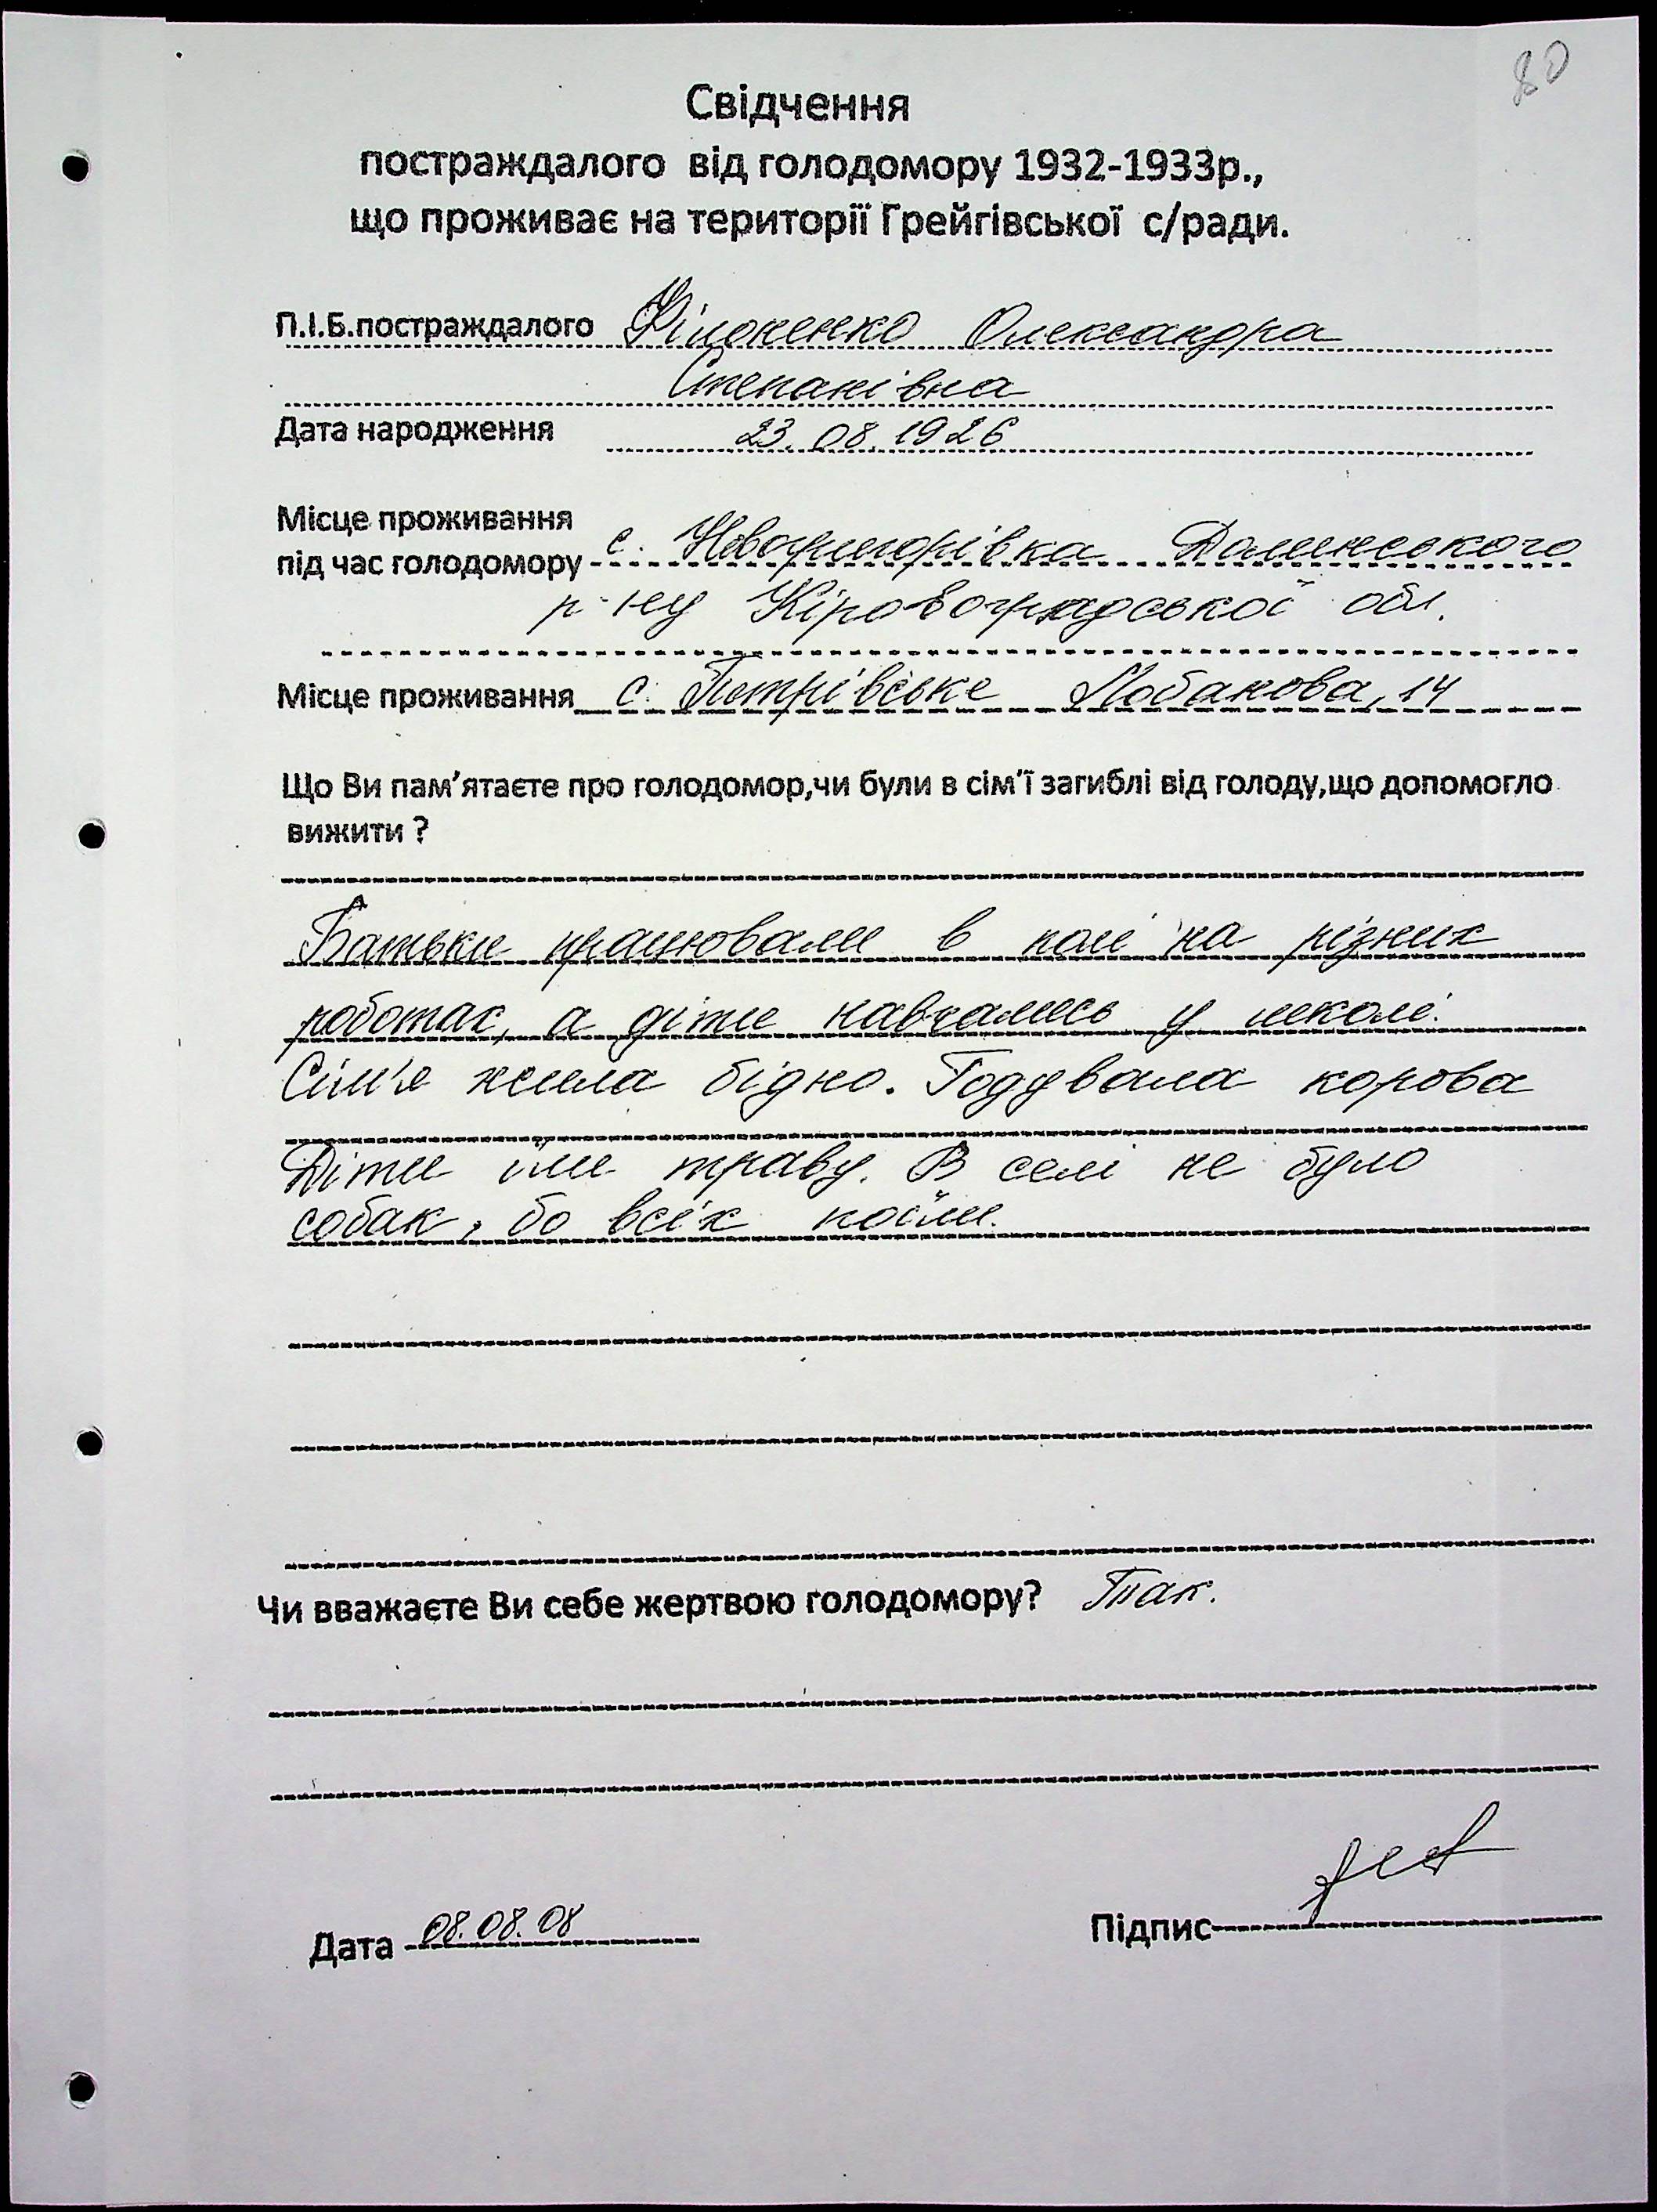 80
Свідчення
постраждалого від голодомору 1932-1933р.,
що проживає на території Грейгівської с/ради.
П.І.Б.постраждалого Філоненко Олександра
Степанівна
Дата народження 23.08.1926
Місце проживання
під час голодомору с. Новогригорівка Долинського
р-ну Кіровоградської обл.
Місце проживання с. Петрівське Лобанова, 14
Що Ви пам'ятаєте про голодомор,чи були в сім'ї загиблі від голоду,що допомогло
вижити ?
Батьки працювали в полі на різних
роботах, а діти навчались у школі.
Сім'я жила бідно. Годувала корова
Діти їли траву. В селі не було
собак, бо всіх поїли.
Чи вважаєте Ви себе жертвою голодомору? Так.
Дата 08.08.08
Підпис